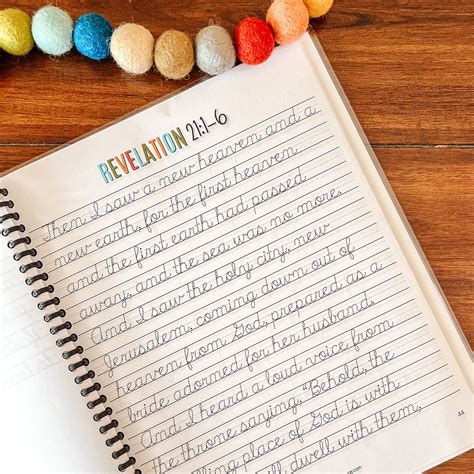 REVELATION 21:1–6
Then I saw a new heaven and a
new earth, for the first heaven
and the first earth had passed
away, and the sea was no more.
And I saw the holy city, new
Jerusalem, coming down out of
heaven from God, prepared as a
bride adorned for her husband.
And I heard a loud voice from
the throne saying, "Behold, the
dwelling place of God is with
will dwell with them,
44
.com